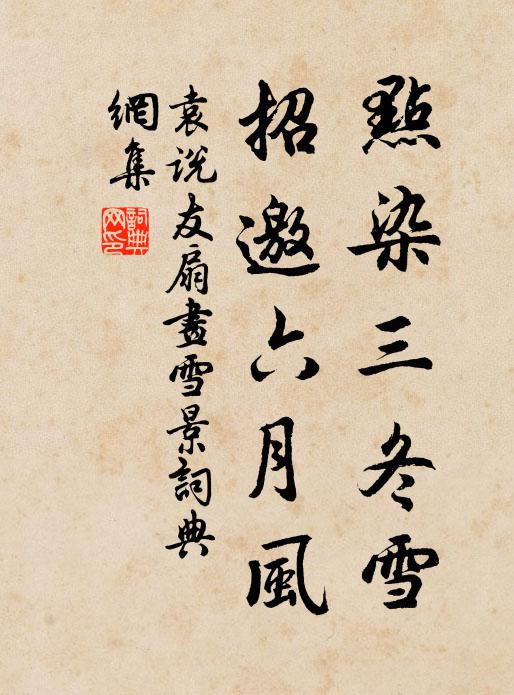 點染三冬雪
招邀六月風
袁説友扇畫雪景詞典
網集
詞典
网印